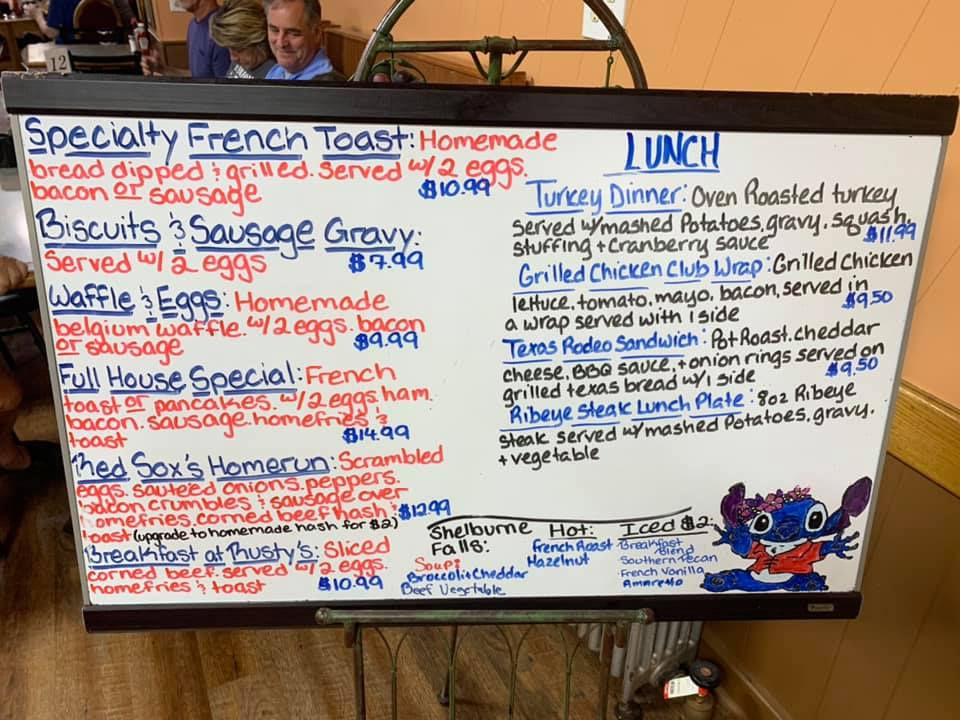 12
Specialty French Toast: Homemade
bread dipped & grilled. Served w/ 2 eggs.
bacon or sausage $10.99
Biscuits & Sausage Gravy:
Served w/ 2 eggs $7.99
Waffle & Eggs: Homemade
belgium waffle. w/ 2 eggs. bacon
or sausage $9.99
Full House Special: French
toast or pancakes. w/ 2 eggs. ham.
bacon. sausage. homefries &
toast $14.99
Red Sox's Homerun: Scrambled
eggs. sauteed onions. peppers.
bacon crumbles & sausage over
homefries. corned beef hash & $12.99
toast (upgrade to homemade hash for $2)
Breakfast at Rusty's: Sliced
corned beef. served w/ 2 eggs.
homefries & toast $10.99
LUNCH
Turkey Dinner: Oven Roasted turkey
served w/mashed Potatoes, gravy, squash,
stuffing + Cranberry sauce $11.99
Grilled Chicken Club Wrap: Grilled Chicken
lettuce, tomato, mayo, bacon, served in
a wrap served with 1 side $9.50
Texas Rodeo Sandwich: Pot Roast, cheddar
cheese, BBQ sauce, + onion rings served on
grilled texas bread w/ 1 side $9.50
Ribeye Steak Lunch Plate: 8oz Ribeye
steak served w/mashed Potatoes, gravy,
+ vegetable
Shelburne Falls:
Hot:
French Roast
Hazelnut
Iced $2:
Breakfast Blend
Southern Pecan
French Vanilla
Amaretto
Soup:
Broccoli Cheddar
Beef Vegetable